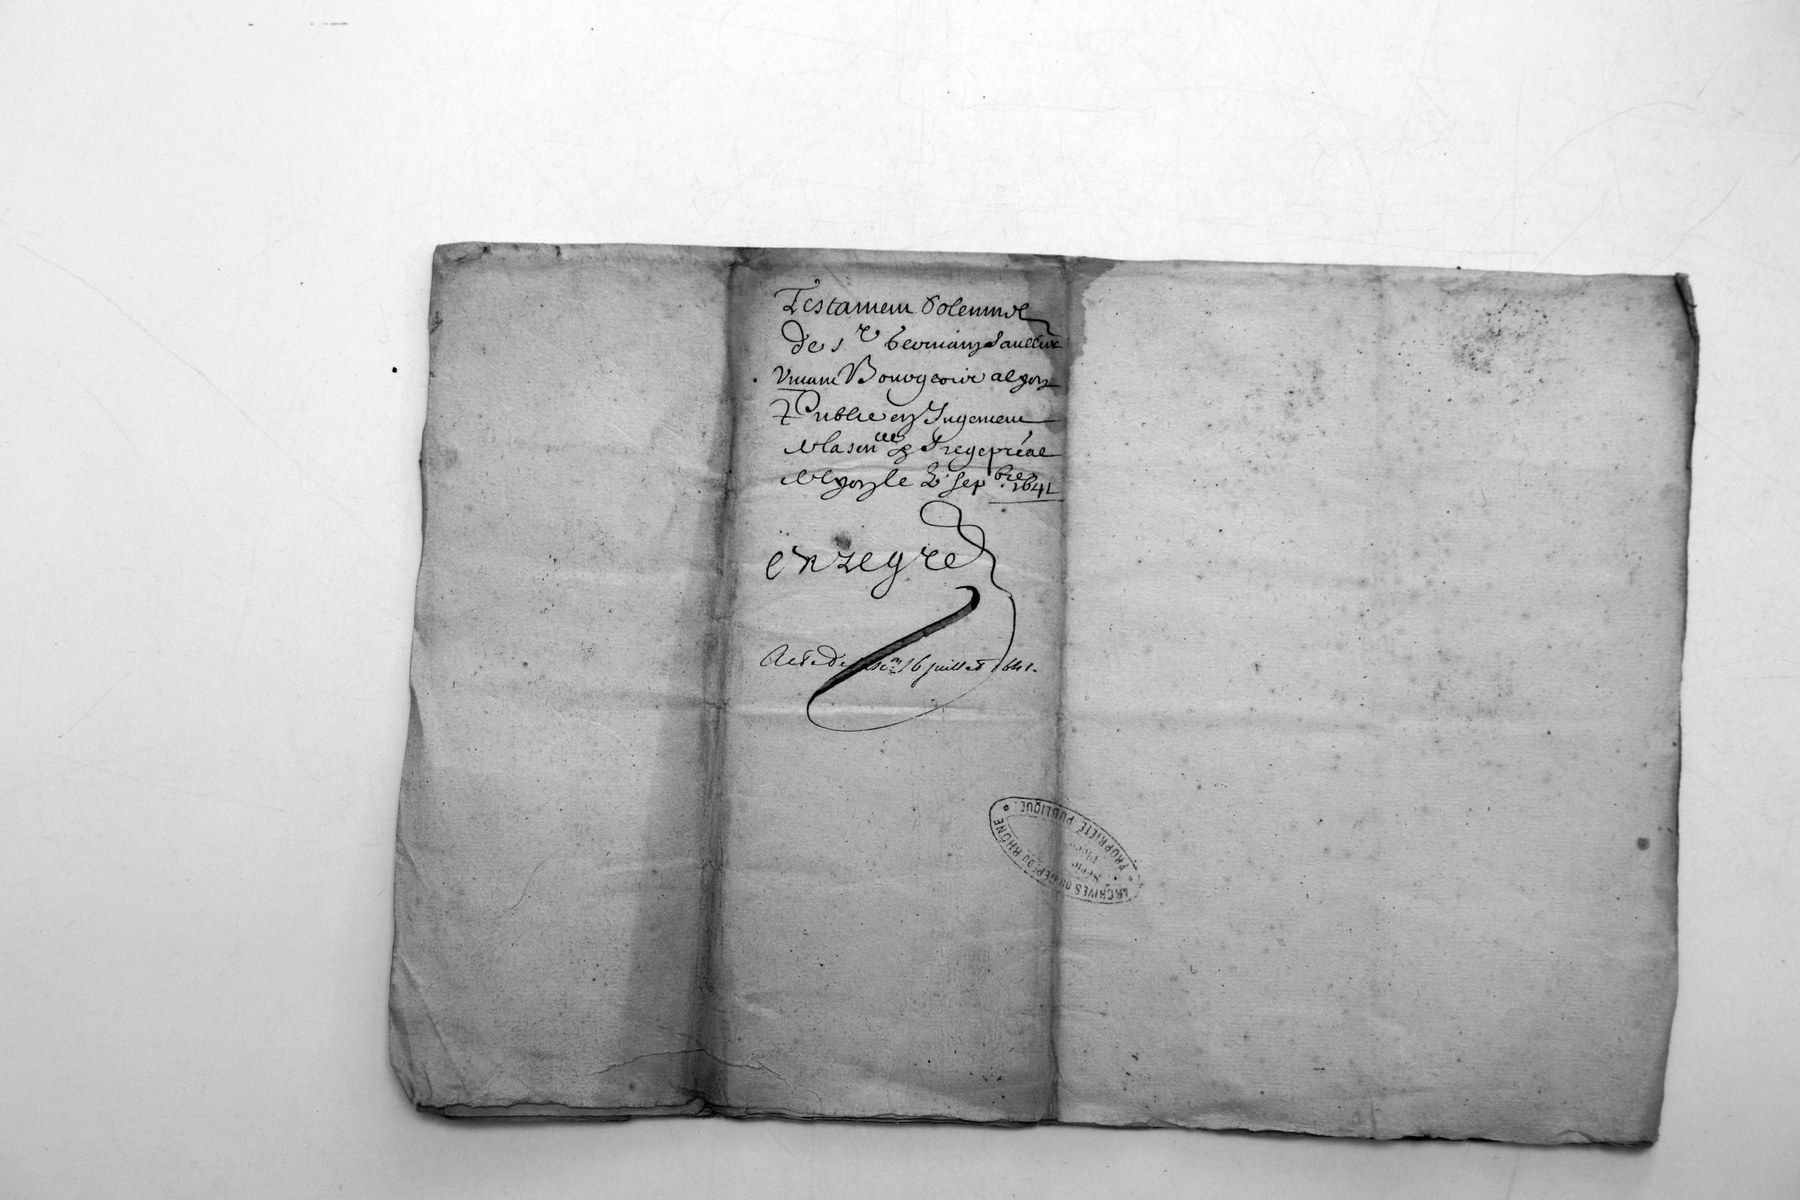 Testament Solemnel
de s.r
vivant Bourgeois a lyon
Publie en Jugement
en la sen.cee & siege p.real
a lyon le 2 sep.bre 1641
enregre
Acte de 16 juillet 1641.
ARCHIVES DU DEP.T DU RHÔNE
* PROPRIÉTÉ PUBLIQUE *